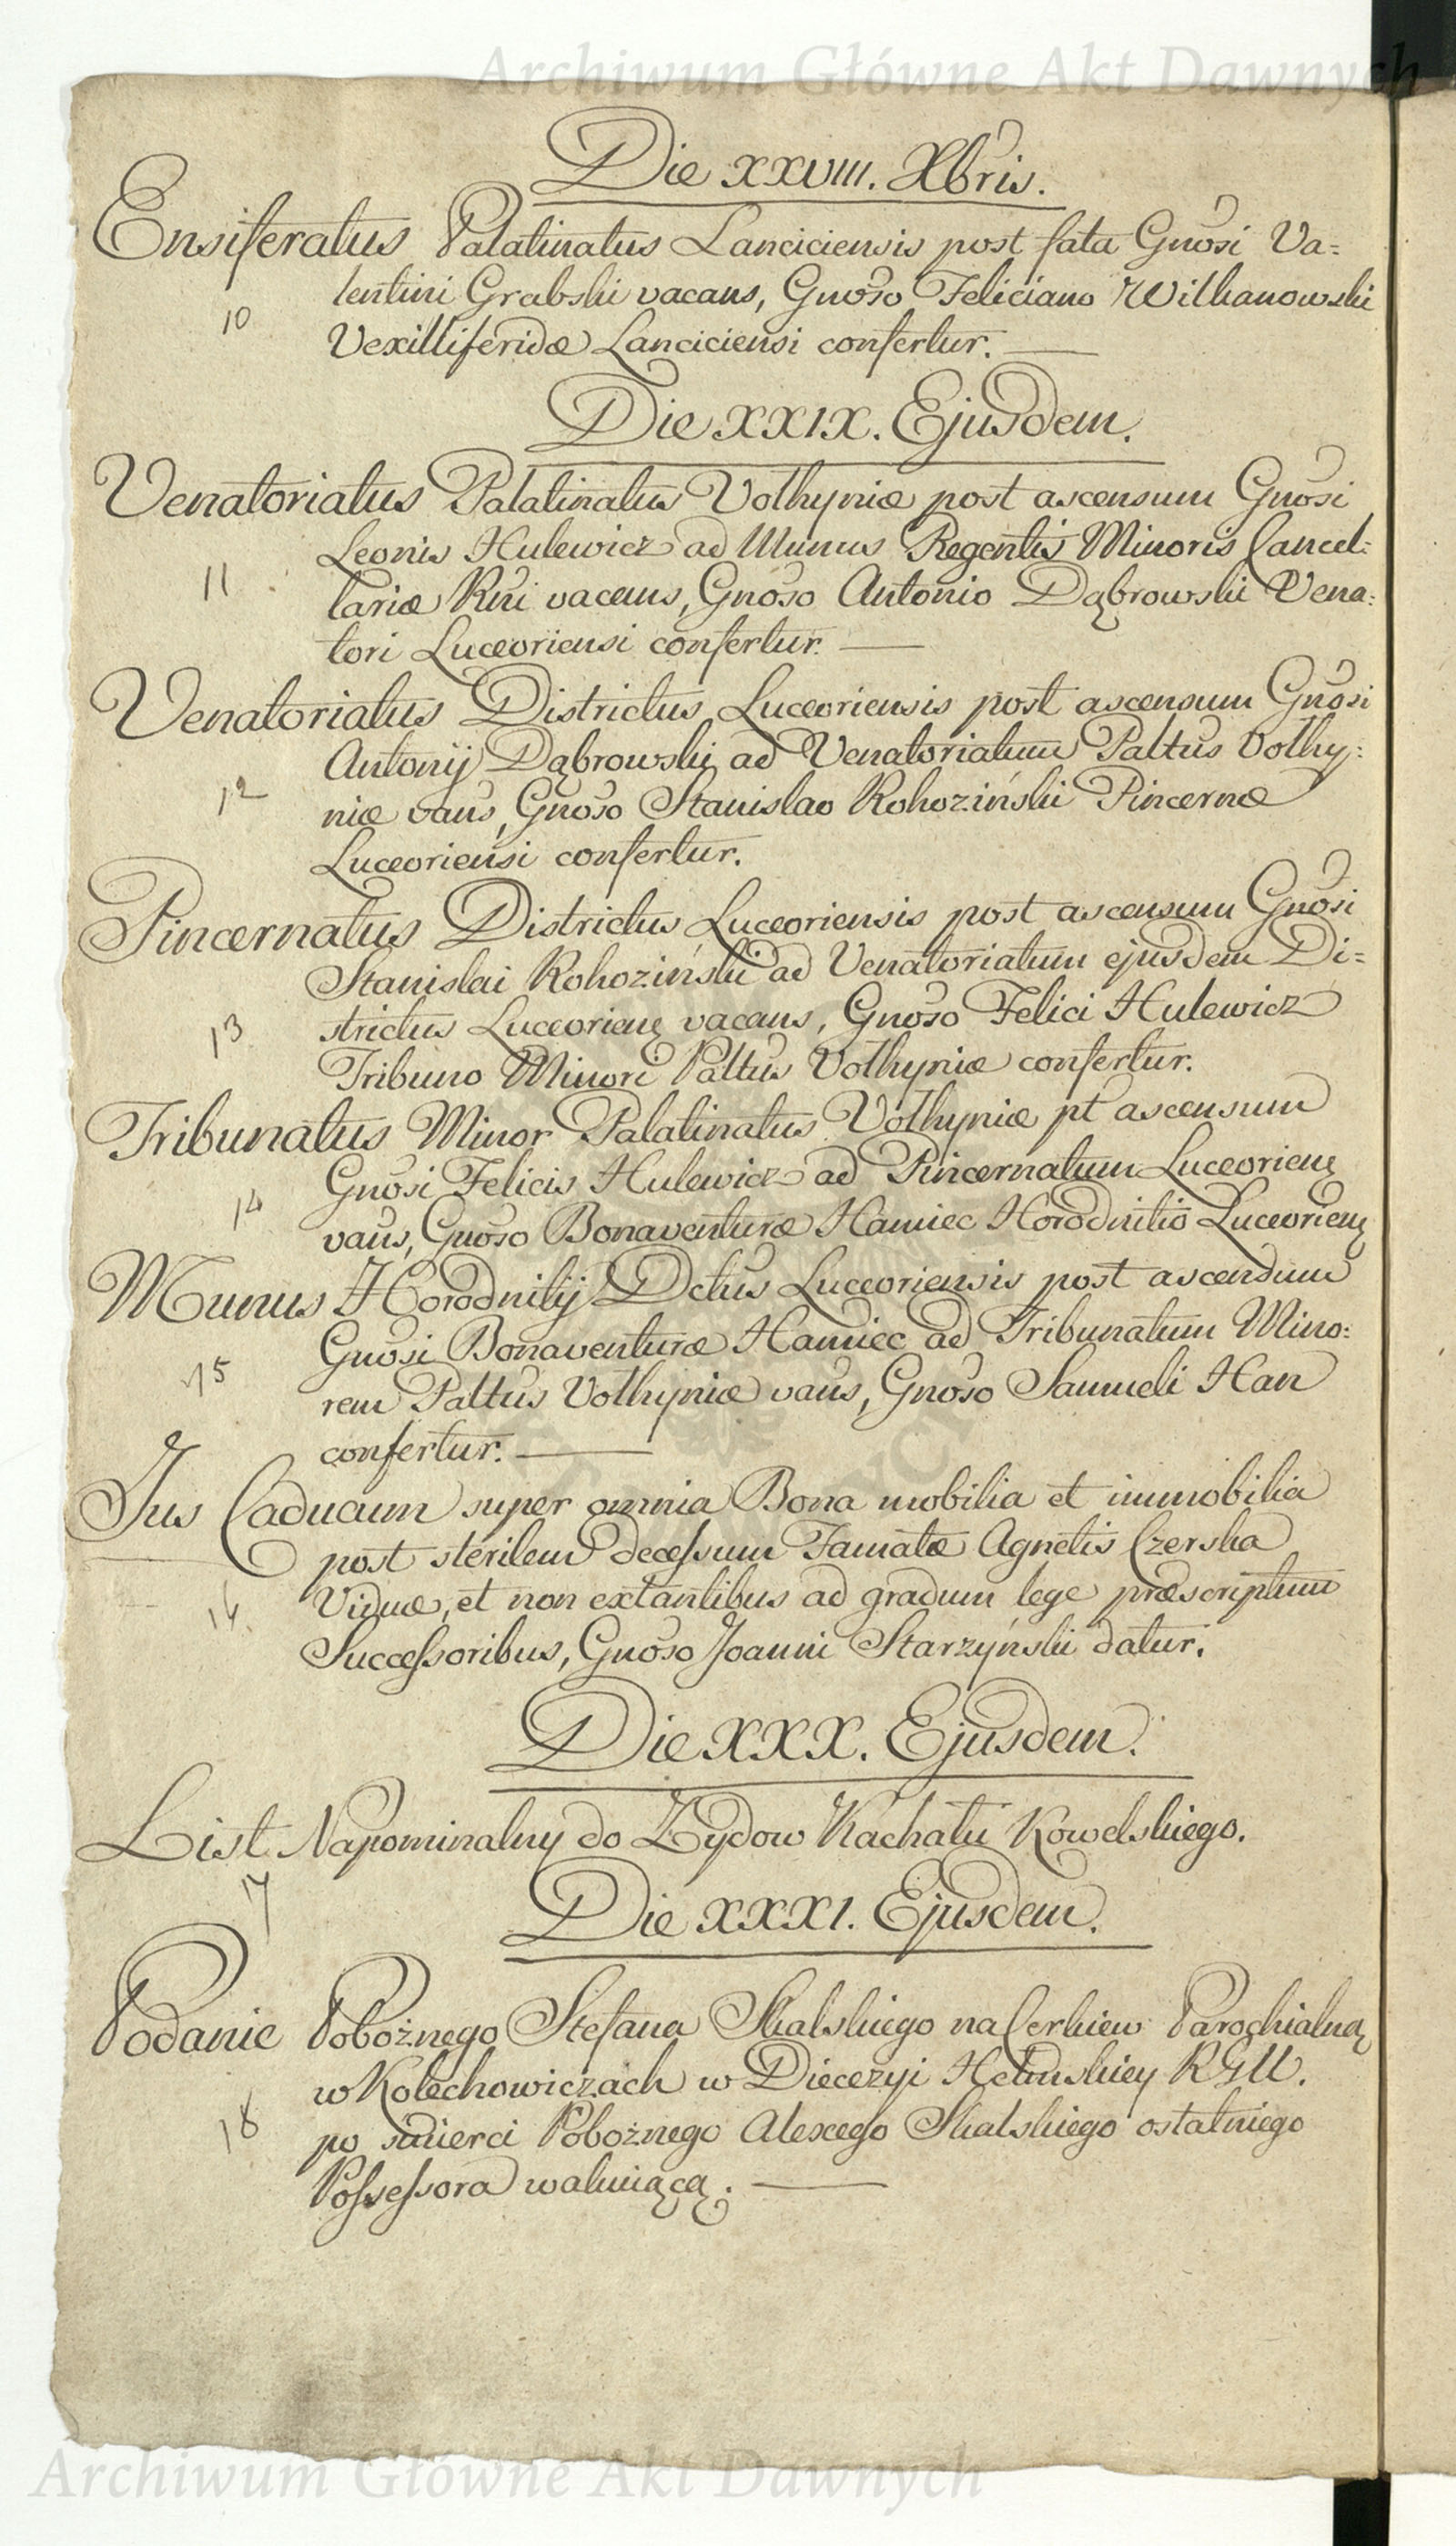 Archiwum Główne Akt Dawnych
Die XXVIII. Xbris.
Ensiferatus Palatinatus Lanciciensis post fata Gnosi Va=
lentini Grabski vacans, Gnoso Feliciano Witkanowski
10
Vexilliferidæ Lanciciensi confertur. —
Die XXIX. Ejusdem.
Venatoriatus Palatinatus Volhyniæ post ascensum Gnosi
Leonis Hulewicz ad Munus Regentis Minoris Cancel:
11
lariæ Rni vacans, Gnoso Antonio Dąbrowski Vena:
tori Luceoriensi confertur. —
Venatoriatus Districtus Luceoriensis post ascensum Gnosi
Antonij Dąbrowski ad Venatoriatum Paltus Volhy:
12
niæ vans, Gnoso Stanislao Rohoziński Pincernæ
Luceoriensi confertur.
Pincernatus Districtus Luceoriensis post ascensum Gnosi
Stanislai Rohoziński ad Venatoriatum ejusdem Di=
13
strictus Luceorien vacans, Gnoso Felici Hulewicz
Tribuno Minori Paltus Volhyniæ confertur.
Tribunatus Minor Palatinatus Volhyniæ pt ascensum
Gnosi Felicis Hulewicz ad Pincernatum Luceorien
14
vans, Gnoso Bonaventuræ Hamiec Horodnitio Luceorien
Munus Horodnitij Dctus Luceoriensis post ascendum
Gnosi Bonaventuræ Hamiec ad Tribunatum Mino:
15
rem Paltus Volhyniæ vans, Gnoso Samueli Han
confertur. —
Jus Caducum super omnia Bona mobilia et immobilia
post sterilem decessum Famatæ Agnetis Czerska
16.
Viduæ, et non extantibus ad gradum lege præscriptum
Successoribus, Gnoso Joanni Starzyński datur.
Die XXX. Ejusdem.
List Napominalny do Zydow Kachału Kowelskiego.
17
Die XXXI. Ejusdem.
Podanie Pobożnego Stefana Skalskiego na Cerkiew Parochialną
w Kolechowiczach w Diecezyi Hełmskiey RGU.
18
po smierci Pobożnego Alexego Skalskiego ostatniego
Possessora wakuiącą. —
Archiwum Główne Akt Dawnych